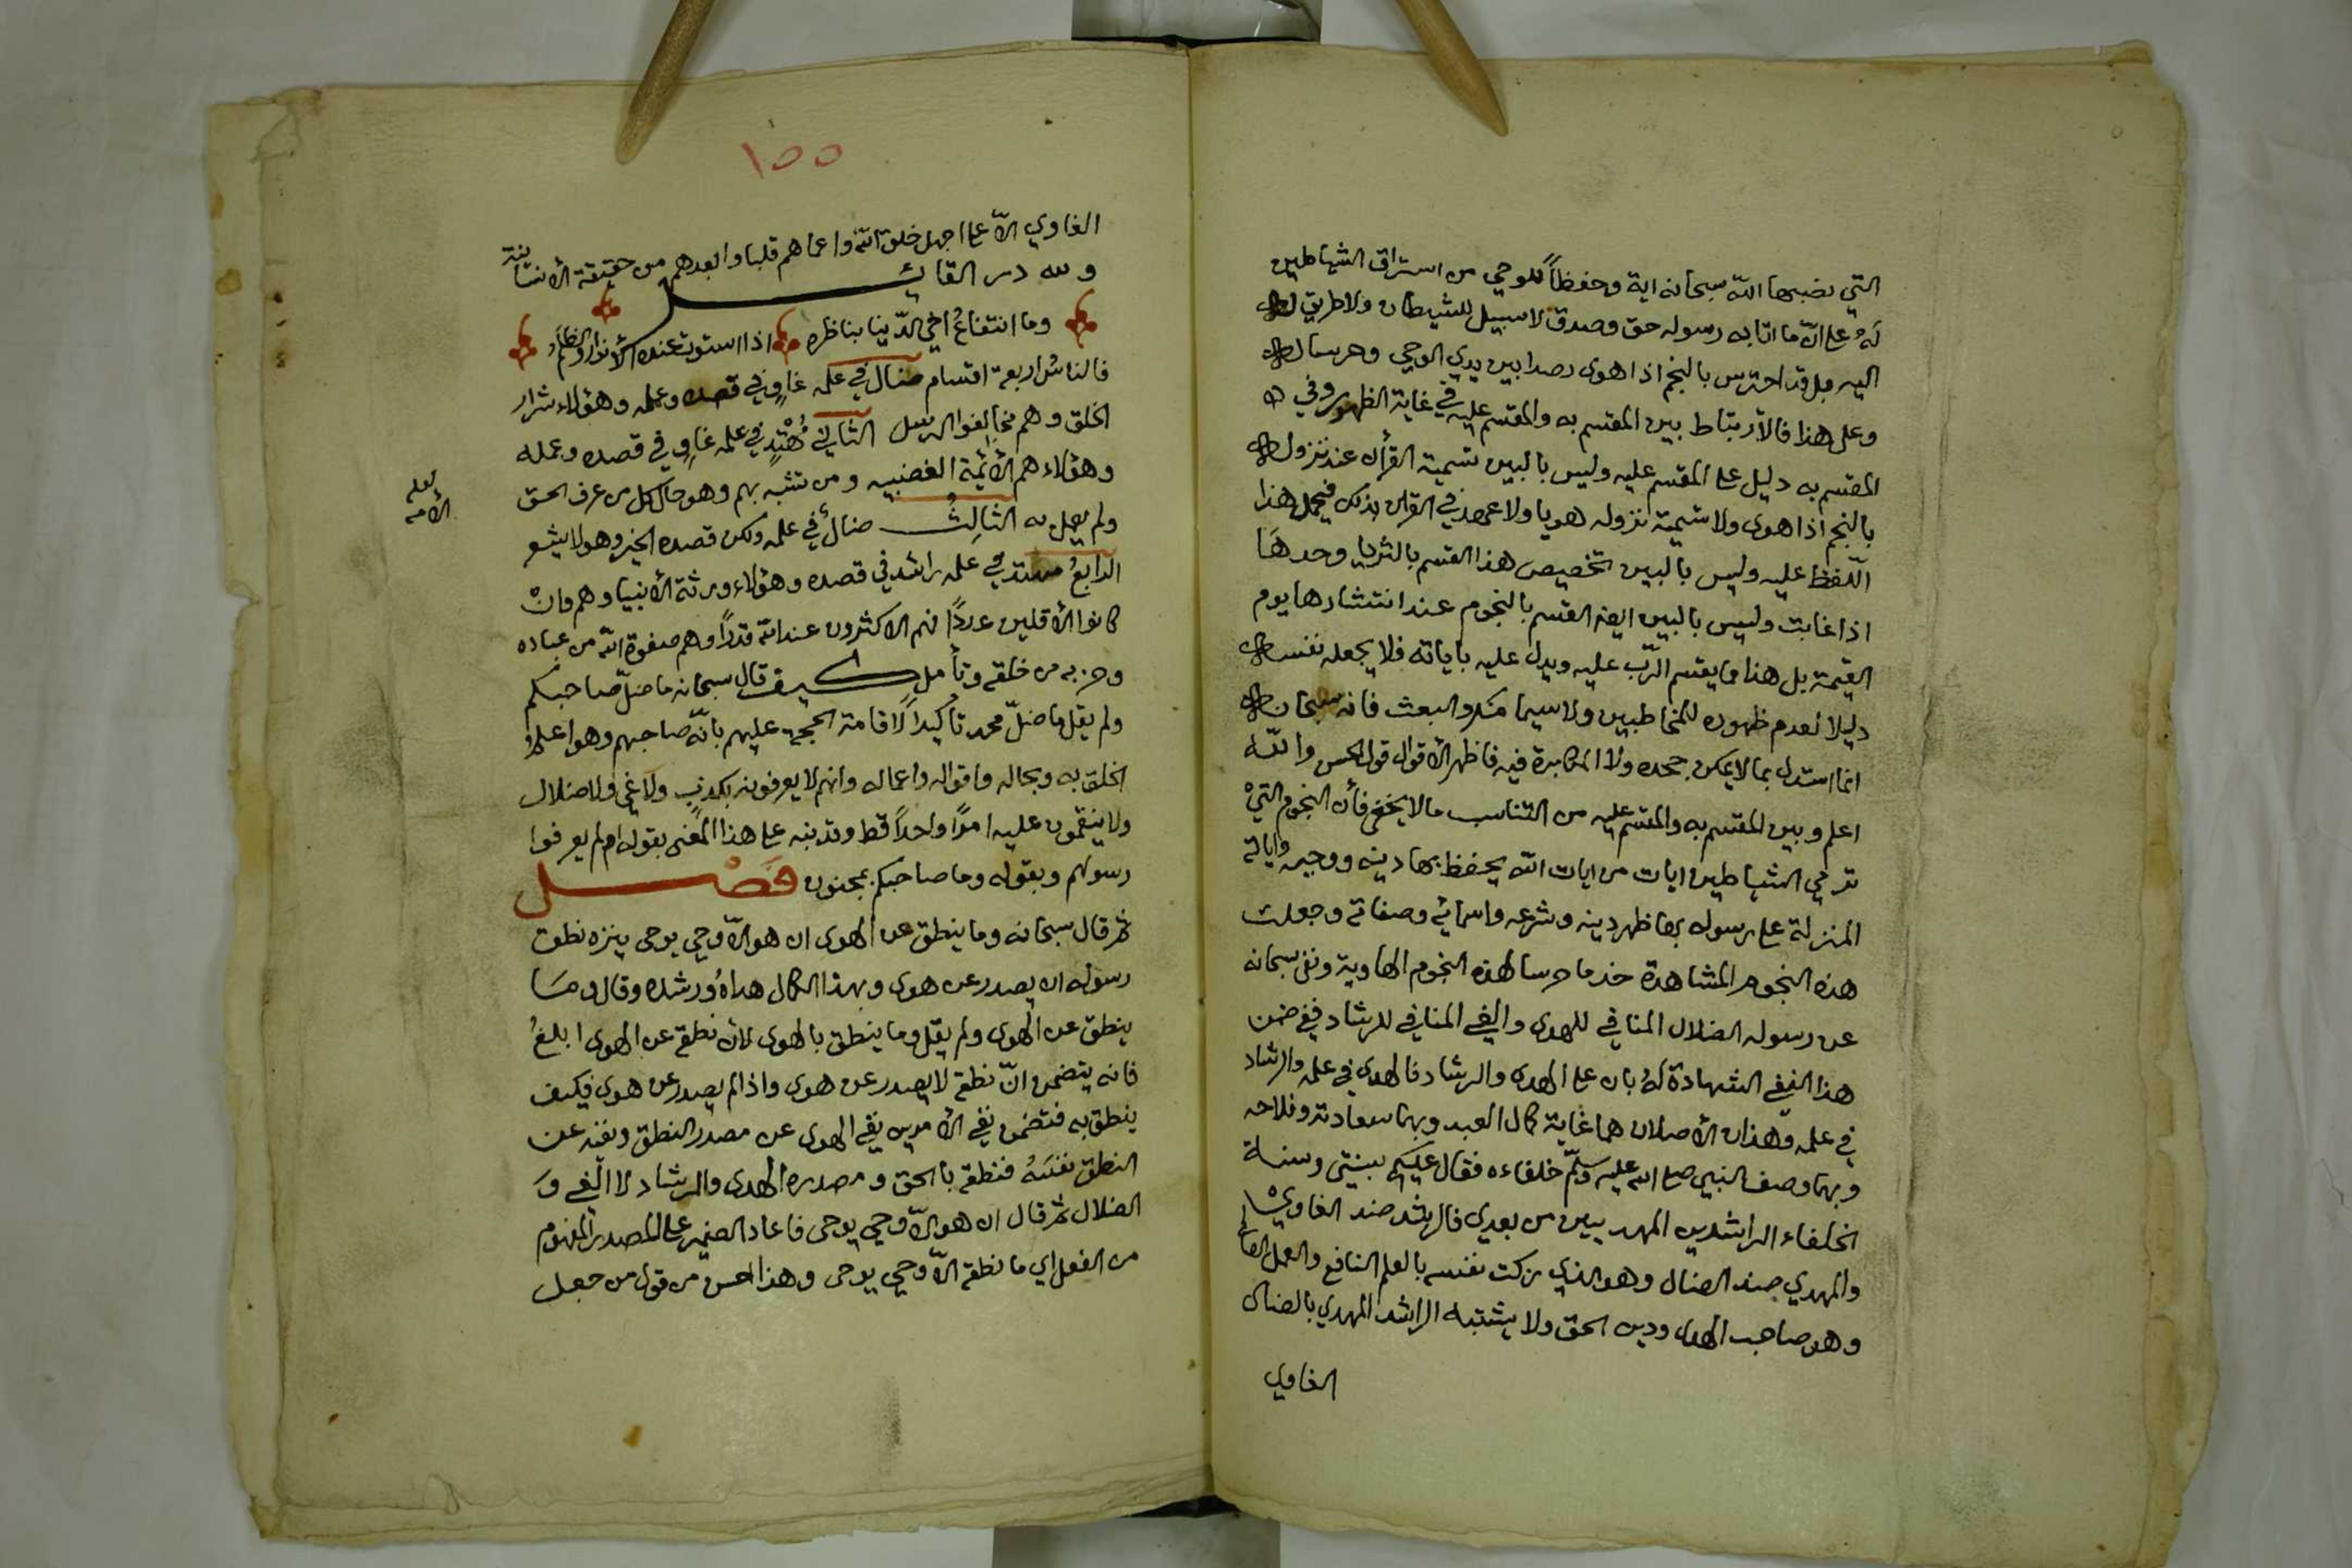 التي نصبها الله سبحانه اية وحفظاً للوحي من استراق الشياطين
لَهُ على انّ ما اتا به رسوله حق وصدق لا سبيل للشيطان ولا طريق له
اليه بل قد احترس بالنجم اذا هوى رصدا بين يدي الوحي وحرسا له
وعلى هذا فالأرتباط بين المقسم به والمقسم عليه في غاية الظهور وفي
المقسم به دليل على المقسم عليه وليس بالبين تسمية القرأن عند نزوله
بالنجم اذا هوى ولا تسمية نزوله هويا ولا عهد في القرأن بذلك فيحمل هذا
اللّفظ عليه وليس بالبين تخصيص هذا القسم بالثريا وحدهَا
اذا غابت وليس بالبين ايضا القسم بالنجوم عند انتشارها يوم
القيمة بل هذا مما يقسم الرّب عليه ويدل عليه باياته فلا يجعله نفسه
دليلا لعدم ظهوره للمخاطبين ولا سيما منكرو البعث فانه سبحانه
انما استدل بما لا يمكن جحده ولا المكابرة فيه فاظهر الأقوال قول الحسن والله
اعلم وبين المقسم به والمقسم عليه من التناسب ما لا يخفى فأن النجوم التي
ترمي الشياطين ايات من ايات الله يحفظ بها دينه ووحيه واياته
المنزلة على رسوله بها ظهر دينه وشرعه واسمائه وصفاته وجعلت
هذه النجوم المشاهدة خدما وحرسا لهذه النجوم الهاوية ونفى سبحانه
عن رسوله الضلال المنافي للهدى والغي المنافي للرشاد ففي ضمن
هذا النفي الشهادة لهُ بان على الهدى والرشاد فالهدى في علمه والرشاد
في عمله وهذان الأصلان هما غاية كمال العبد وبهما سعادته وفلاحه
وبهما وصف النبي صلى الله عليه وسلّم خلفاءه فقال عليكم بسنتي وسنة
الخلفاء الراشدين المهديين من بعدي فالراشد ضد الغاوي
والمهدي ضد الضال وهو الذي زكت نفسه بالعلم النافع والعمل الصالح
وهو صاحب الهدى ودين الحق ولا يشتبه الراشد المهدي بالضال
الغاوي
١٥٥
الغاوي الاّ على اجهل خلق الله واعماهم قلبا وابعدهم من حقيقة الأنسانية
ولله در القائل
وما انتفاعُ اخي الدّنيا بناظره اذا استوت عنده الأنوار والظلَمُ
فالناسُ اربعة اقسام ضال في علمه غاوٍ في قصده وعمله وهؤلاء شرار
الخلق وهم مخالفوا الرسل الثاني مُهْتدٍ في علمه غاوٍ في قصده وعمله
وهؤلاء هم الأئمّة الغضبيه ومن تشبه بهم وهو حال كل من عرف الحق
لعله
الأمه
ولم يعمل به الثالِثُ ضال في علمه ولكن قصده الخير وهو لا يشعر
الرابعُ مهتد في علمه راشد في قصده وهؤلاء ورثة الأنبيا وهم وانْ
كانوا الأقلين عددًا فهم الاكثرون عند الله قدرًا وهم صفوة الله من عباده
وحزبه من خلقه وتأمل كيف قال سبحانه ما ضلّ صاحبكم
ولم يقل ما ضلّ محمد تأكيداً لاقامة الحجة عليهم بانّه صاحبهم وهو اعلمُ
الخلق به وبحاله واقواله واعماله وانهم لا يعرفونه بكذبٍ ولا غي ولا ضلال
ولا ينقمون عليه امرًا واحداً قط وقد نبه على هذا المعنى بقوله ام لم يعرفوا
رسولهم وبقوله وما صاحبكم بمجنون فَصْل
ثم قال سبحانه وما ينطق عن الهوى ان هو الاّ وحي يوحى ينزه نطق
رسوله ان يصدر عن هوى وبهذا الكمال هداهُ ورشده وقال ومَا
ينطق عن الهوى ولم يقل وما ينطق بالهوى لأن نطقه عن الهوى ابلغُ
فانه يتضمن انّ نطقه لا يصدر عن هوى واذا لم يصدر عن هوى فكيف
ينطق به فتضمن نفي الأمرين نفي الهوى عن مصدر النطق ونفيه عن
النطق نفسَهُ فنطقه بالحق ومصدره الهدى والرشاد لا الغي وَ
الضلال ثم قال ان هو الاّ وحي يوحى فاعاد الضمير على المصدر المفهوم
من الفعل اي ما نطقه الاّ وحي يوحى وهذا احسن من قول من جعل